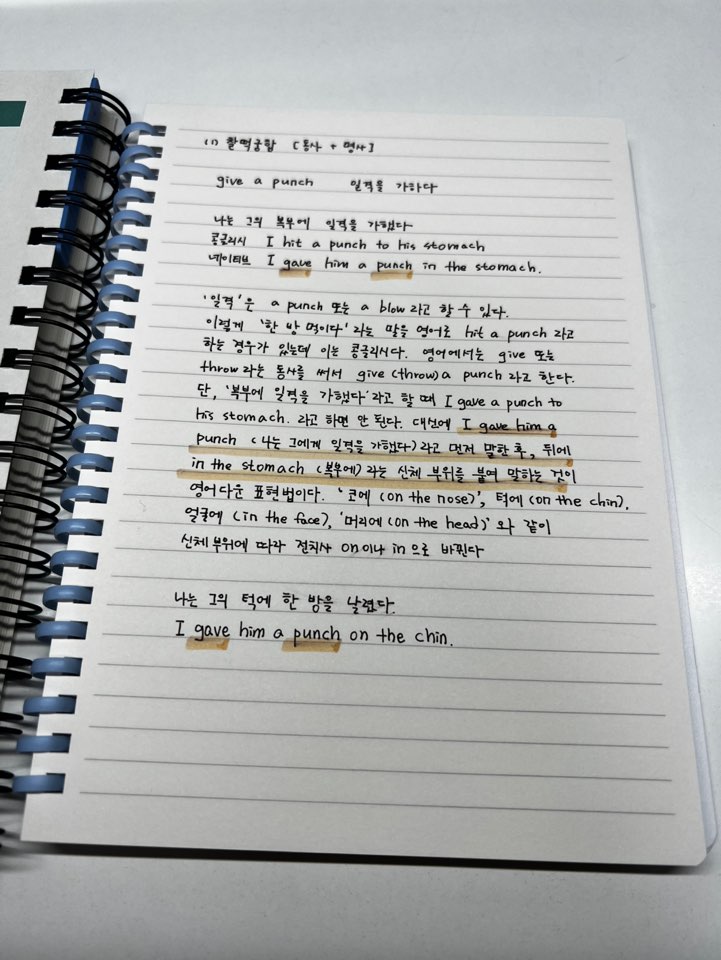 (1) 찰떡궁합 [동사 + 명사]
give a punch 일격을 가하다
나는 그의 복부에 일격을 가했다
콩글리시 I hit a punch to his stomach
네이티브 I gave him a punch in the stomach.
'일격'은 a punch 또는 a blow라고 할 수 있다.
이렇게 '한 방 먹이다'라는 말을 영어로 hit a punch 라고
하는 경우가 있는데 이는 콩글리시다. 영어에서는 give 또는
throw라는 동사를 써서 give (throw) a punch 라고 한다.
단, '복부에 일격을 가했다'라고 할 때 I gave a punch to
his stomach. 라고 하면 안 된다. 대신에 I gave him a
punch (나는 그에게 일격을 가했다)라고 먼저 말한 후, 뒤에
in the stomach (복부에)라는 신체 부위를 붙여 말하는 것이
영어다운 표현법이다. '코에 (on the nose)', 턱에 (on the chin).
얼굴에 (in the face), '머리에 (on the head)' 와 같이
신체부위에 따라 전치사 on이나 in 으로 바뀐다
나는 그의 턱에 한 방을 날렸다.
I gave him a punch on the chin.